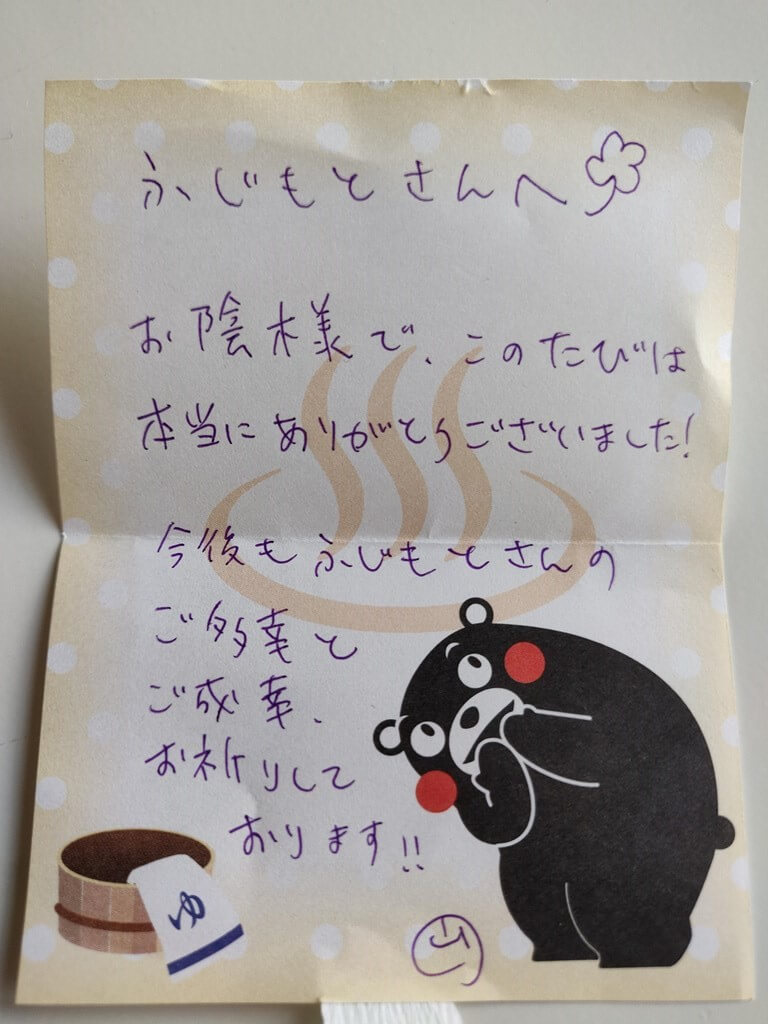 ふじもとさんへ
お陰様で、このたびは
本当にありがとうございました!
今後もふじもとさんの
ご多幸と
ご成幸、
お祈りして
おります!!
ゆ
山